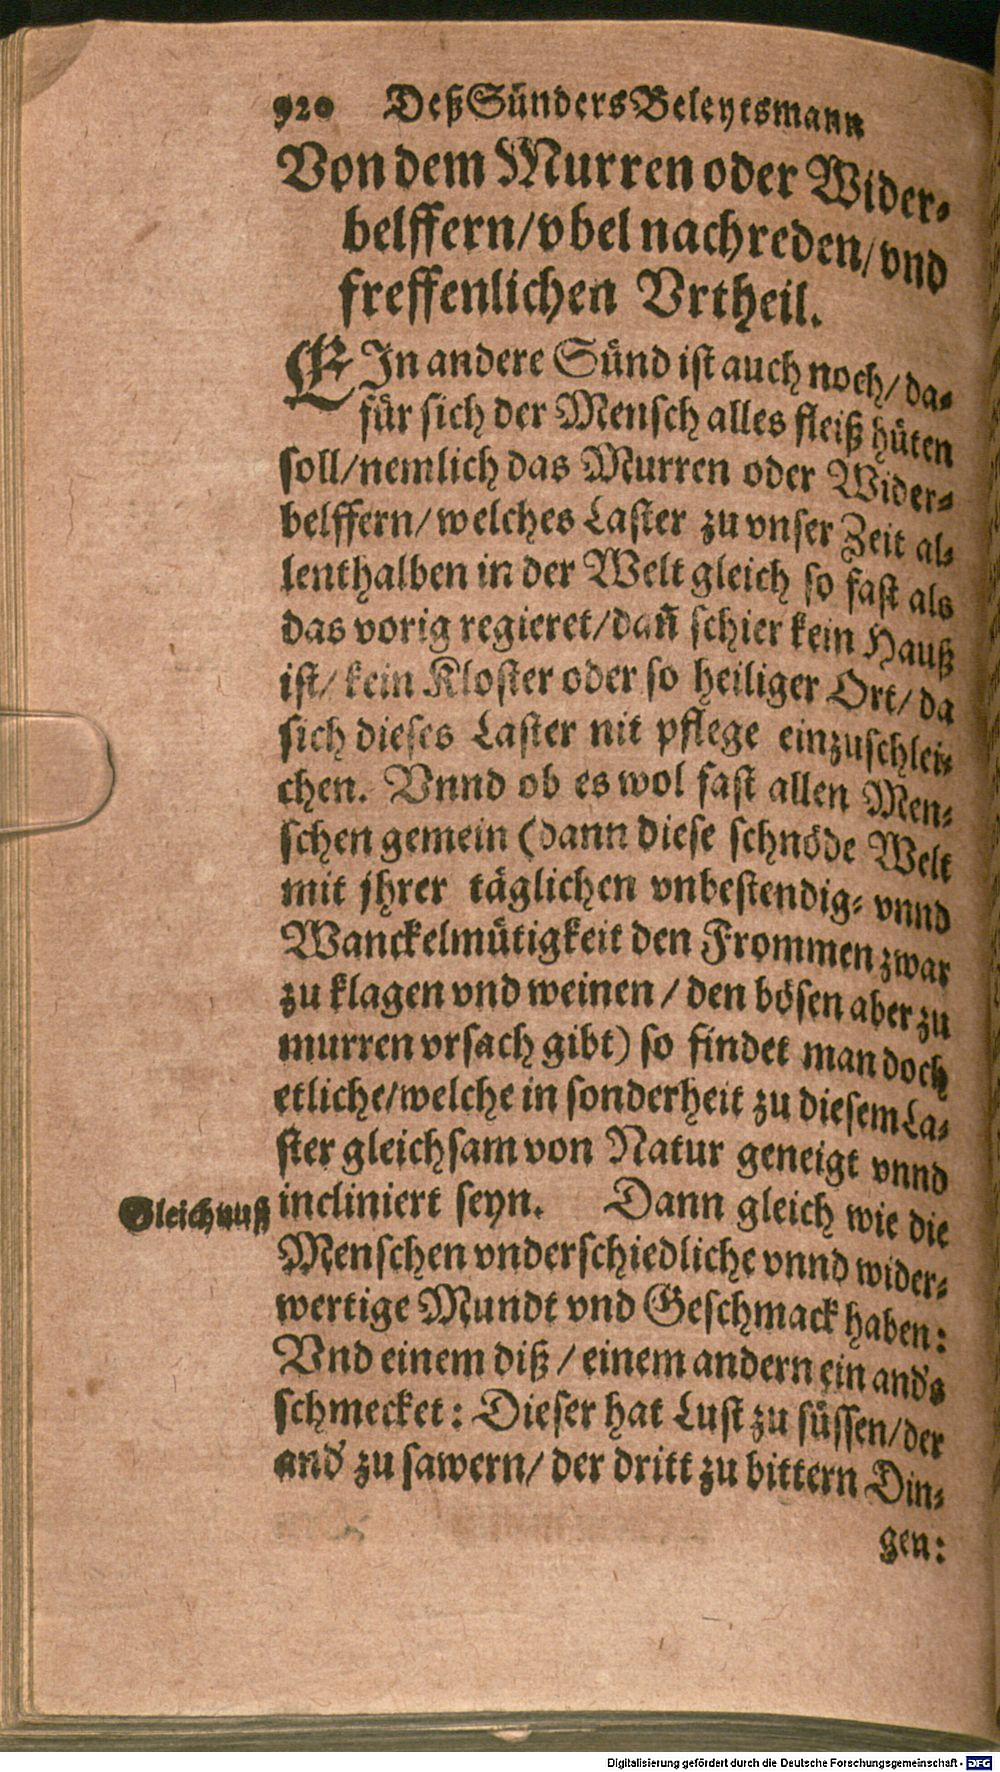 920 Deß Sünders Beleytsmann
Von dem Murren oder Wider-
belffern/vbel nachreden/vnd
freffenlichen Vrtheil.
EIn andere Sünd ist auch noch/da-
für sich der Mensch alles fleiß hüten
soll/nemlich das Murren oder Wider-
belffern/welches Laster zu vnser Zeit al-
lenthalben in der Welt gleich so fast als
das vorig regieret/dañ schier kein Hauß
ist/kein Kloster oder so heiliger Ort/da
sich dieses Laster nit pflege einzuschlei-
chen. Vnnd ob es wol fast allen Men-
schen gemein (dann diese schnöde Welt
mit jhrer täglichen vnbestendig- vnnd
Wanckelmütigkeit den Frommen zwar
zu klagen vnd weinen / den bösen aber zu
murren vrsach gibt) so findet man doch
etliche/welche in sonderheit zu diesem La-
ster gleichsam von Natur geneigt vnnd
Gleichnuß
incliniert seyn. Dann gleich wie die
Menschen vnderschiedliche vnnd wider-
wertige Mundt vnd Geschmack haben:
Vnd einem diß / einem andern ein and's
schmecket: Dieser hat Lust zu süssen/der
and' zu sawern/ der dritt zu bittern Din-
gen:
Digitalisierung gefördert durch die Deutsche Forschungsgemeinschaft - DFG